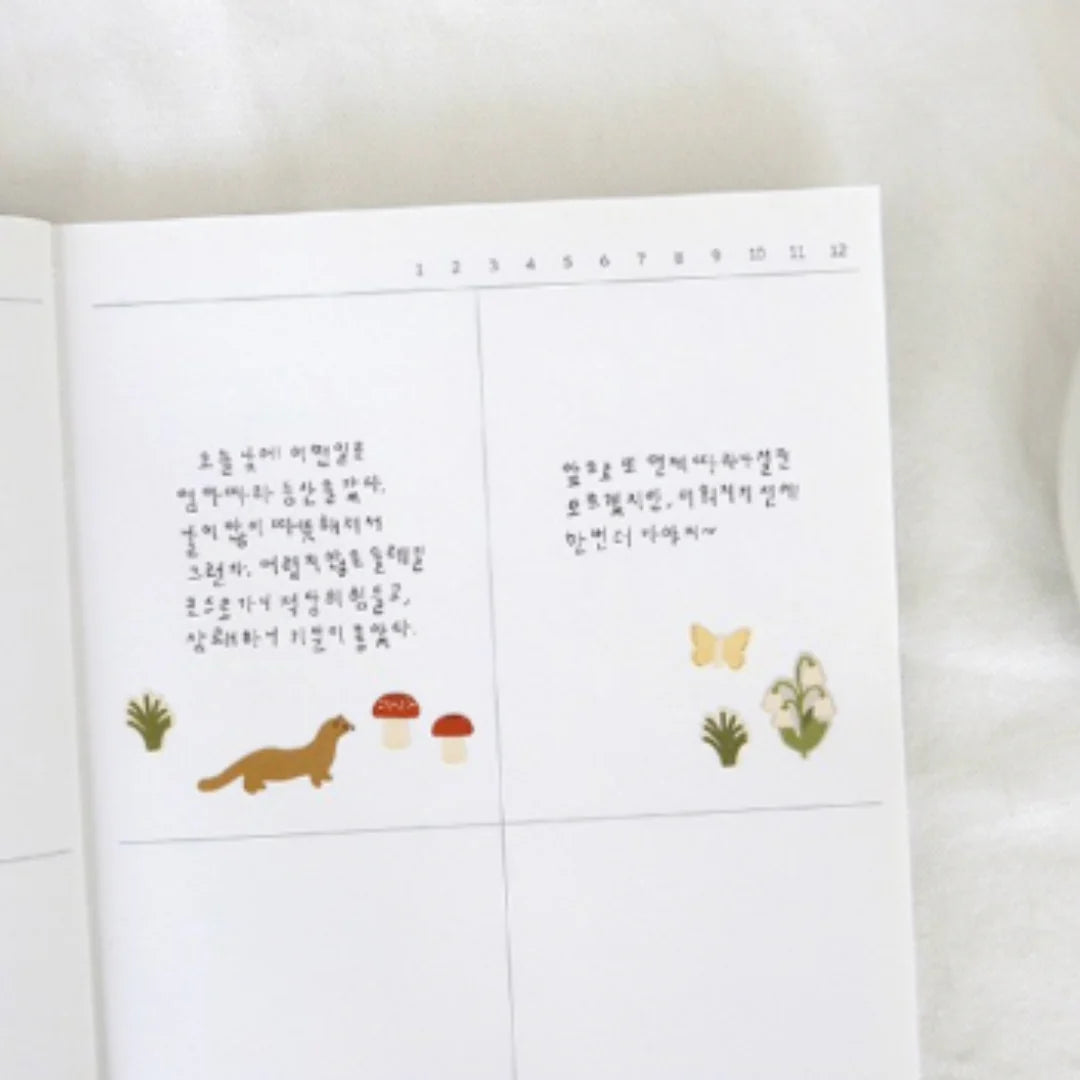 1 2 3 4 5 6 7 8 9 10 11 12
오늘 낮에 어쩐일로
엄마따라 등산을 갔다.
날이 많이 따뜻해져서
그런가, 어렵지 않은 둘레길
코스로 가서 적당히 힘들고,
상쾌하니 기분이 좋았다.
앞으로 또 언제 따라나설진
모르겠지만, 더워지기 전에
한번 더 가야지~